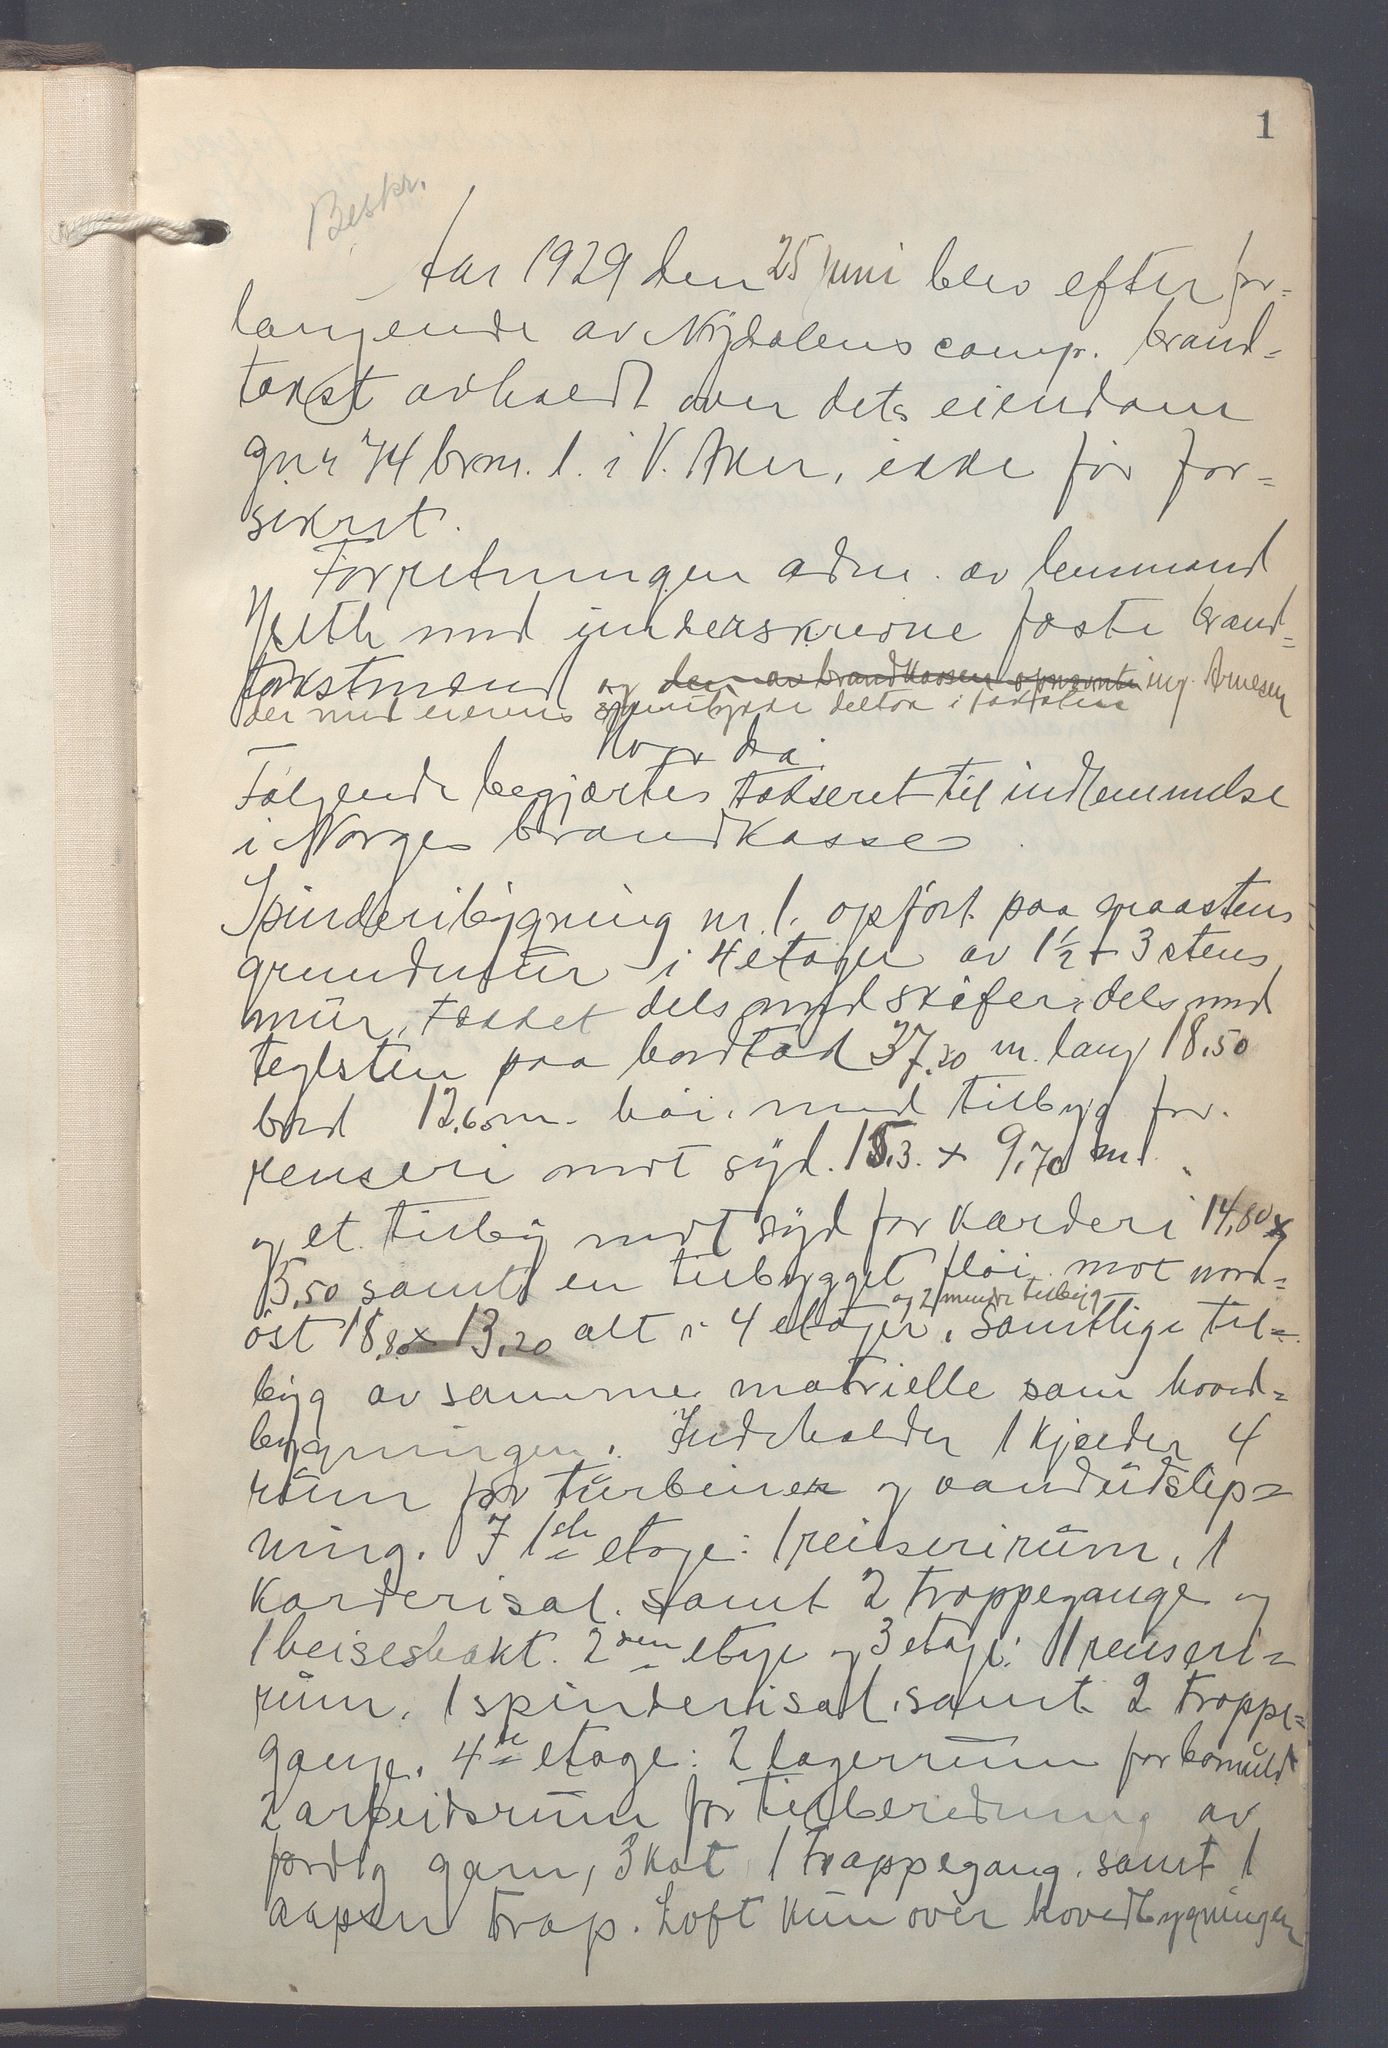 1
Beskr.
Aar 1929 den 25 juni blev efter for=
langende av Nydalens comp. brand=
takst avholdt over dets eiendom
gnr 74 brnr. 1. i V. Aker, ikke før for=
sikret.
Forretningen adm. av lensmand
med underskrevne faste brand=
takstmænd og den av brandkassen opnævnte ing. Arnesen
der med eierens samtykke deltok i taksten
Hvor da:
Følgende begjærtes takseret til indlemmelse
i Norges Brandkasse
Spinderibygning nr. 1. opført paa graastens
grundmur i 4 etager av 1½ + 3 stens
mur, tækket dels med skifer, dels med
teglsten paa bordtak 37,20 m. lang 18,50
bred 12,60 m. høi, med tilbyg for
renseri mot syd. 15,3. x 9,70 m.
og et tilbyg mot syd for karderi 14,80 x
5,50 samt en tilbygget fløi mot nord=
og 2 mindre tilbyg
øst 18,80 x 13,20 alt i 4 etager, samtlige til=
byg av samme matrielle som hoved=
bygningen. Indeholder 1 kjælder 4
rum for turbiner og vandudslip=
ning. I 1ste etage: 1 renserirum, 1
karderisal. samt 2 trappegange og
1 heisesjakt. 2den etage og 3 etage: 1 renseri=
rum, 1 spinderisal, samt 2 trappe=
gange. 4de etage: 2 lagerrum for bomuld
2 arbeidsrum for tilberedning av
færdig garn, 3 kot 1 trappegang. samt 1
aapen trap. Loft kun over hovedbygningen